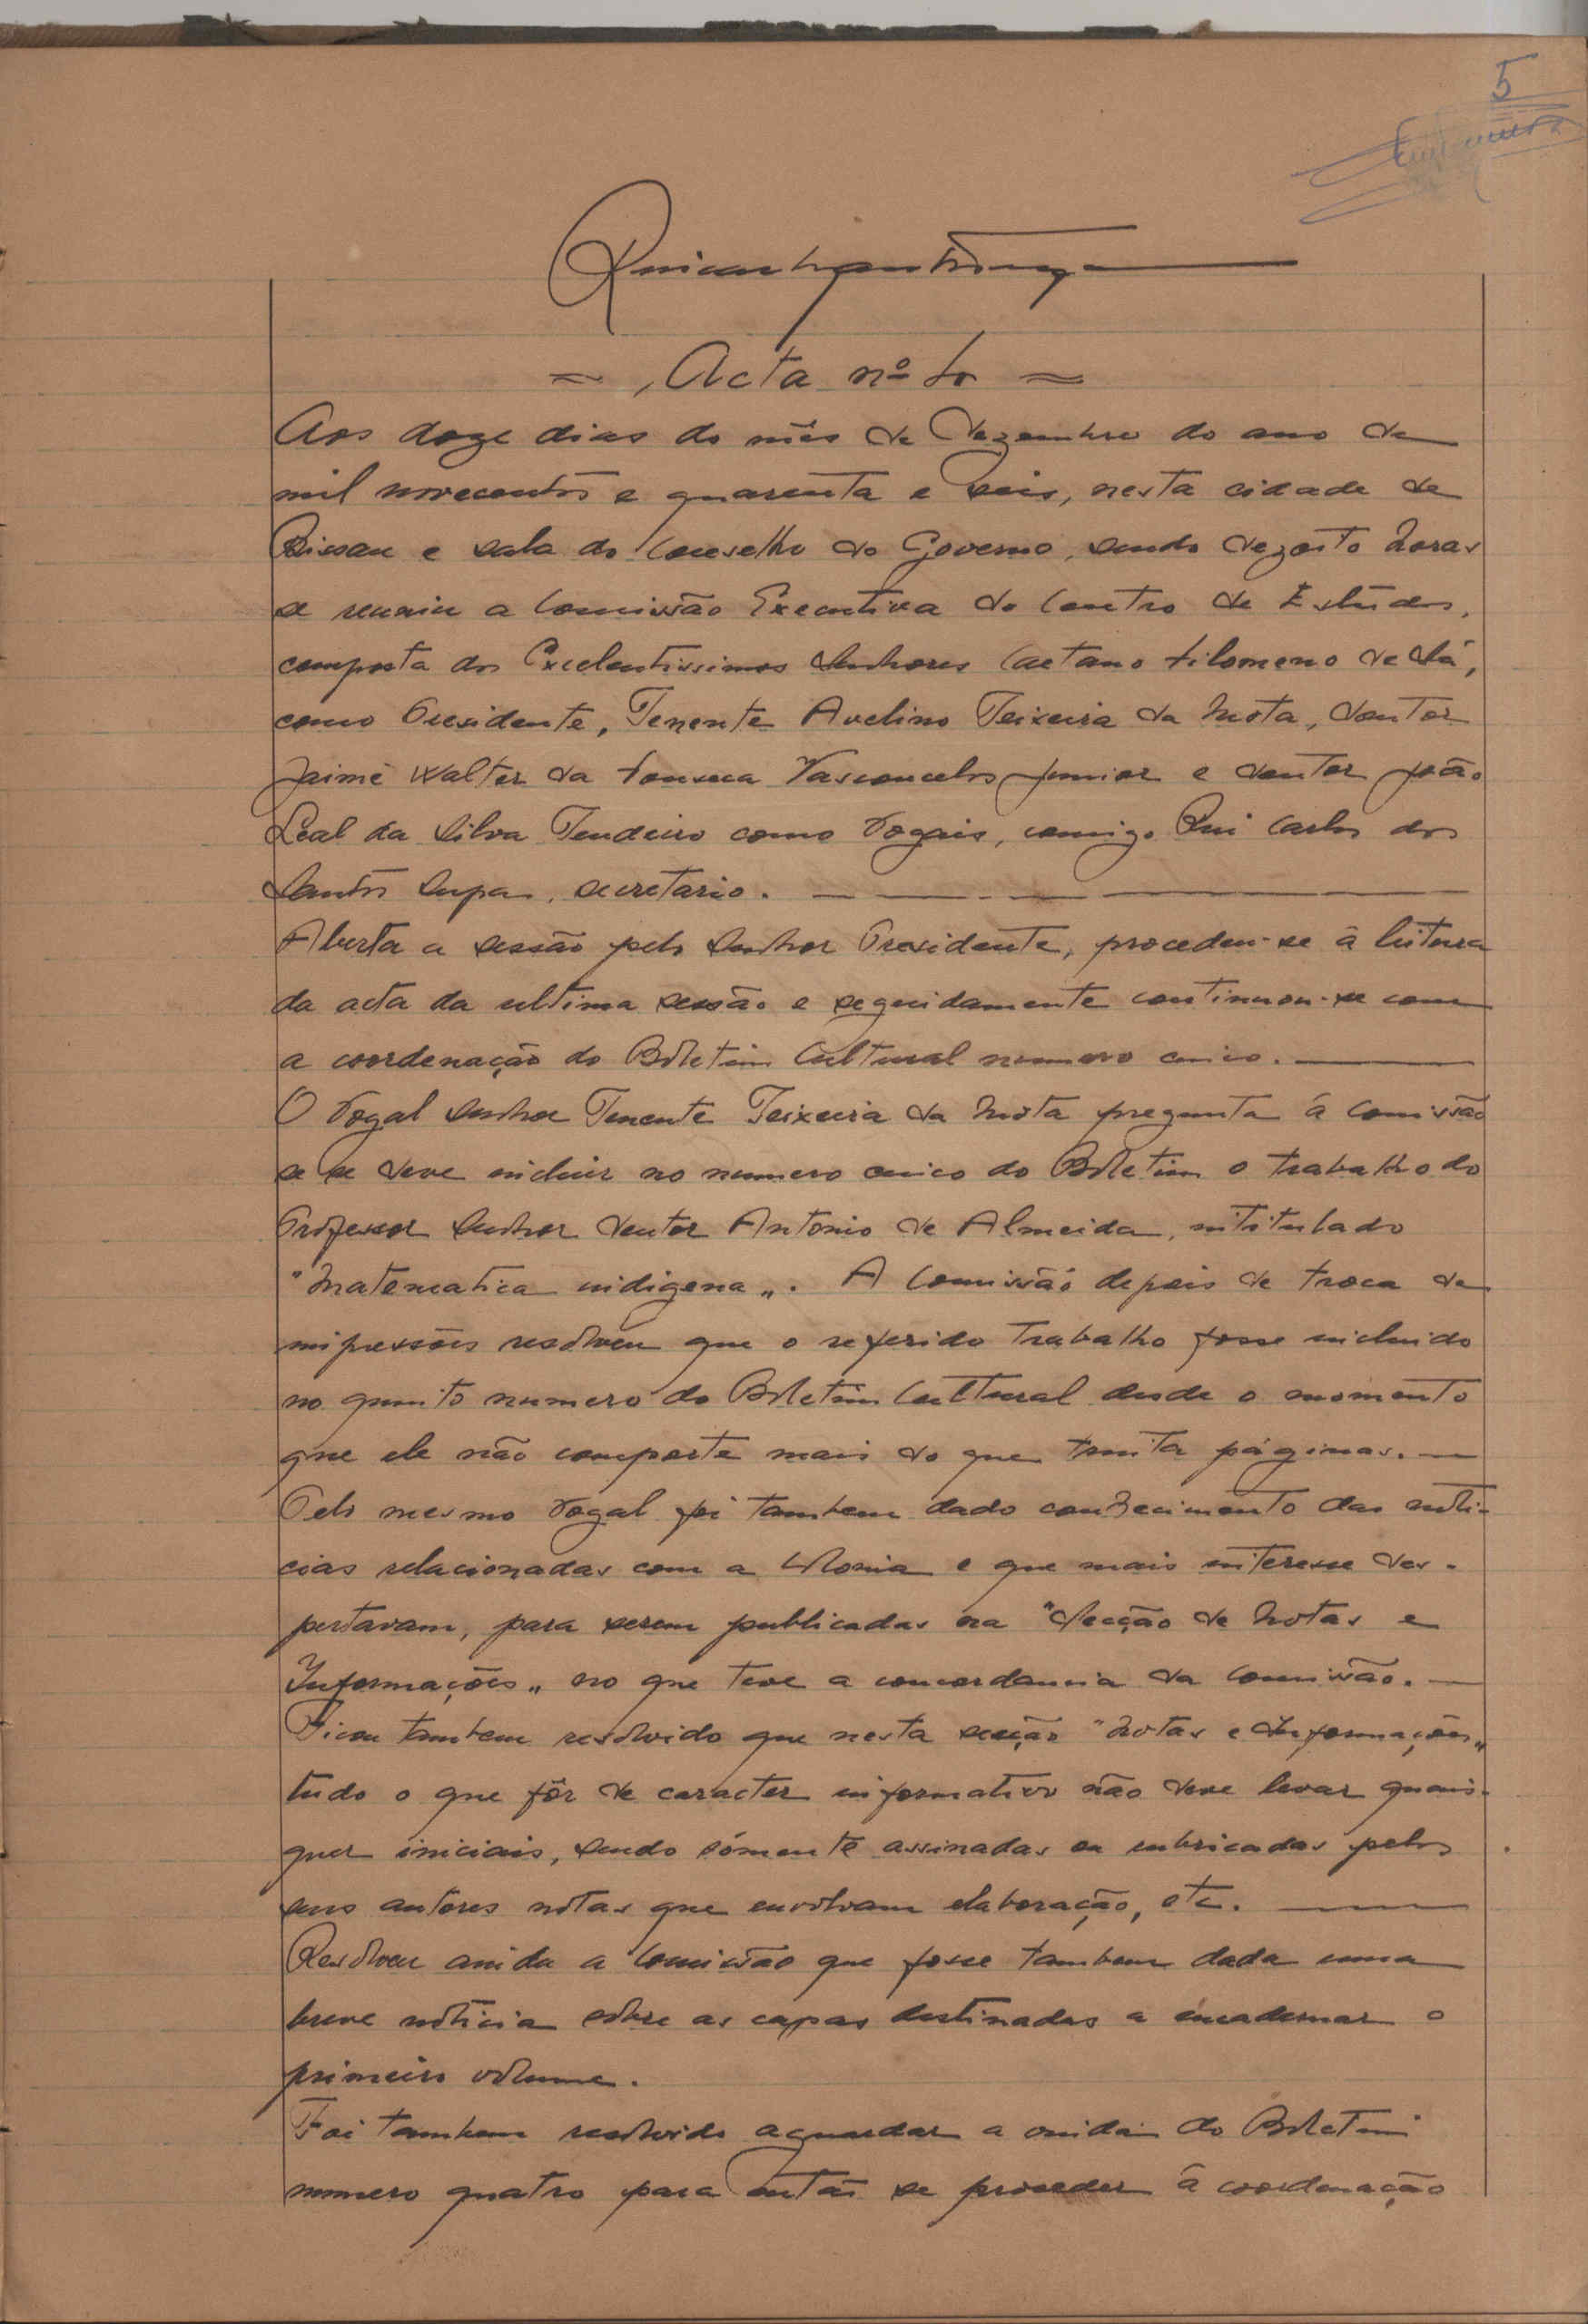 5
= Acta nº =
Aos doze dias do mês de Dezembro do ano de
mil novecentos e quarenta e seis, nesta cidade de
Bissau e sala do Conselho do Governo, sendo dezoito horas
se reuniu a Comissão Executiva do Centro de Estudos,
composta dos Excelentissimos Senhores Caetano Filomeno de Sá,
como Presidente, Tenente Avelino Teixeira da Mota, doutor
Jaime Walter da Fonseca Vasconcelos Junior e doutor João
Leal da Silva Tendeiro como Vogais, comigo Rui Carlos dos
Santos, secretario.
Aberta a sessão pelo Senhor Presidente, procedeu-se à leitura
da acta da ultima sessão e seguidamente continuou-se com
a coordenação do Boletim Cultural numero cinco.
O Vogal Senhor Tenente Teixeira da Mota pregunta á Comissão
se se deve incluir no numero cinco do Boletim o trabalho do
Professor Senhor doutor Antonio de Almeida, intitulado
"Matematica indigena". A Comissão depois de troca de
impressões resolveu que o referido trabalho fosse incluido
no quinto numero do Boletim Cultural desde o momento
que ele não comporte mais do que trinta páginas.
Pelo mesmo Vogal foi tambem dado conhecimento das noti-
cias relacionadas com a Colonia e que mais interesse des-
pertavam, para serem publicadas na "Secção de Notas e
Informações" no que teve a concordancia da Comissão.
Ficou tambem resolvido que nesta secção "Notas e Informações"
tudo o que fôr de caracter informativo não deve levar quais-
quer iniciais, sendo sómente assinadas ou rubricadas pelos
seus autores notas que envolvam elaboração, etc.
Resolveu ainda a Comissão que fosse tambem dada uma
breve noticia sobre as capas destinadas a encadernar o
primeiro volume.
Foi tambem resolvido aguardar a do Boletim
numero quatro para então se proceder à coordenação